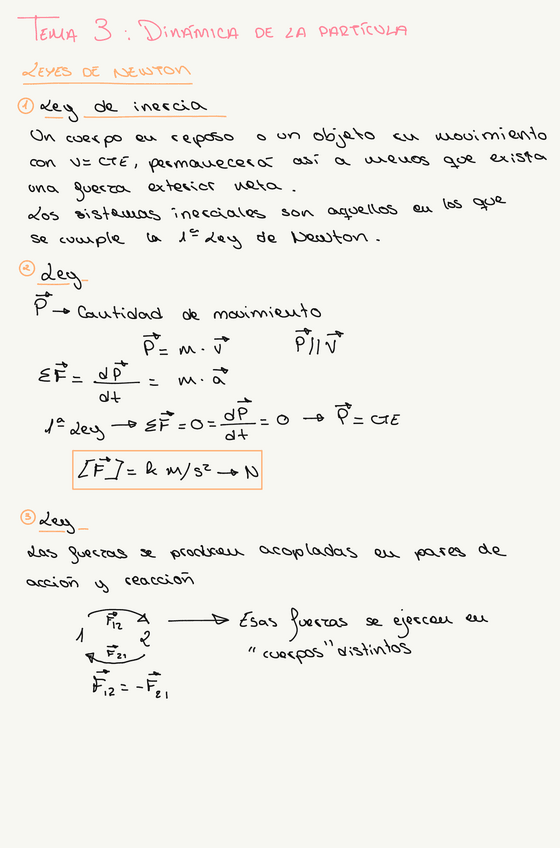 TEMA 3: DINÁMICA DE LA PARTÍCULA
LEYES DE NEWTON
① Ley de inercia
Un cuerpo en reposo o un objeto en movimiento
con v = CTE, permanecerá así a menos que exista
una fuerza exterior neta.
Los sistemas inerciales son aquellos en los que
se cumple la 1ª Ley de Newton.
② Ley
P⃗ → Cantidad de movimiento
P⃗ = m · v⃗    P⃗ // v⃗
ΣF⃗ = dP⃗/dt = m · a⃗
1ª Ley → ΣF⃗ = 0 = dP⃗/dt = 0 → P⃗ = CTE
[F⃗] = k m/s² → N
③ Ley
Las fuerzas se producen acopladas en pares de
acción y reacción
1 F⃗₁₂ 2 → Esas fuerzas se ejercen en
F⃗₂₁ "cuerpos" distintos
F⃗₁₂ = -F⃗₂₁